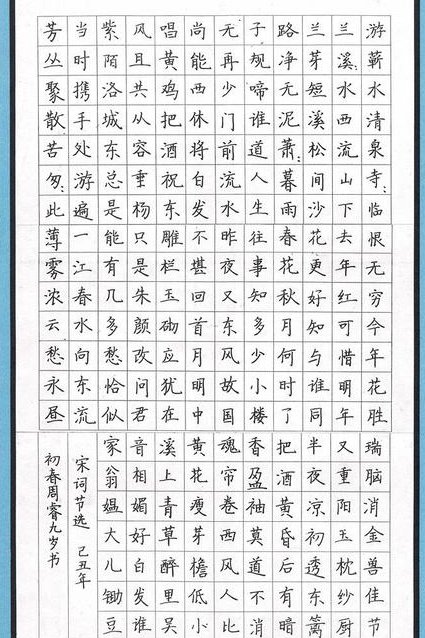 游蕲水清泉寺：临恨无穷今年花胜
兰溪：水西流山下去年红可惜明年
兰芽短溪松间沙花更好知与谁同
路净无泥萧：暮雨春花秋月何时了
子规啼谁道人生往事知多少小楼
无再少门前流水昨夜又东风故国
尚能西休将白发不堪回首月明中
唱黄鸡把酒祝东雕栏玉砌应犹在
风且共从容垂杨只是朱颜改问君
紫陌洛城东总是能有几多愁恰似
当时携手处游遍一江春水向东流
芳丛聚散苦匆：此薄雾浓云愁永昼
瑞脑消金兽佳节
又重阳玉枕纱厨
半夜凉初透东篱
把酒黄昏后有暗
香盈袖莫道不消
魂帘卷西风人比
黄花瘦芽檐低小
溪上青草醉里吴
音相媚好白发谁
家翁媪大儿锄豆
宋词节选 己丑年
初春周睿九岁书